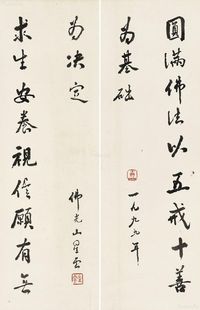 圓滿佛法以五戒十善
為基礎
一九九九年
求生安養視信願有無
為決定
佛光山星雲